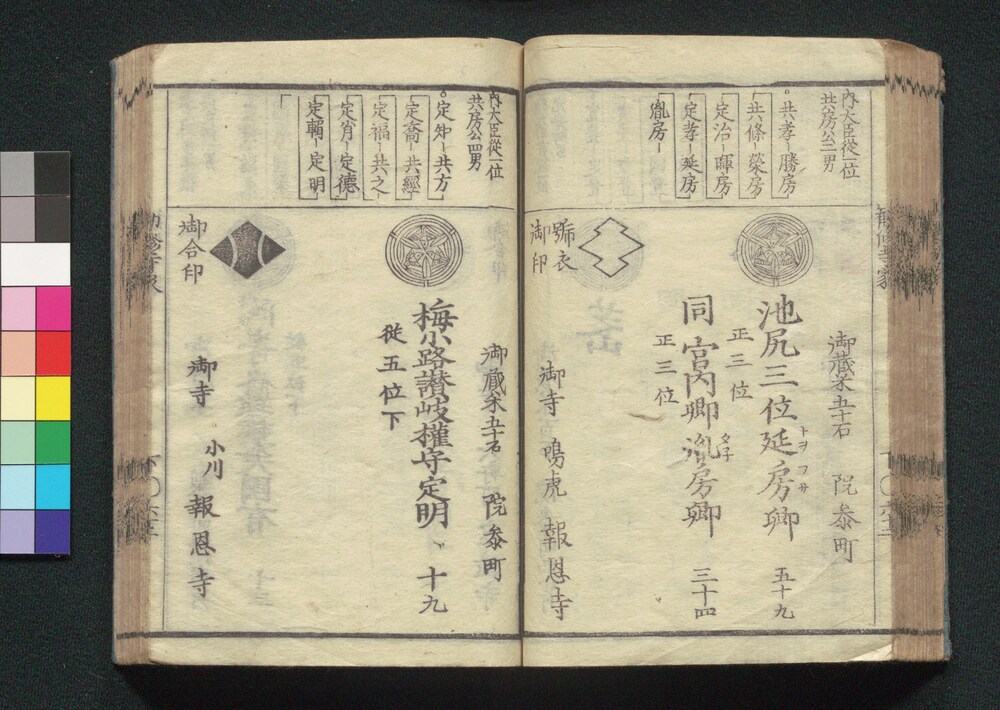 内大臣従一位
共房公二男
共孝ー勝房
共條ー榮房
定治ー暉房
定孝ー延房
胤房ー
御蔵米五十石　院参町
池尻三位延房卿　五十九
正三位
同宮内卿胤房卿　三十四
タ子
正三位
號衣
御印
御寺　鳴虎　報恩寺
内大臣從一位
共房公四男
定矩ー共方
定喬ー共經
定福ー共之
定肖ー定德
定輔ー定明
御蔵米五十石　院参町
梅小路讃岐權守定明　十九
從五位下
御合印
御寺　小川　報恩寺